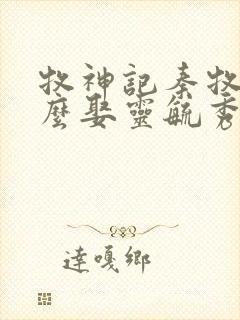 牧神記秦牧
麼娶靈毓秀
達嘎鄉